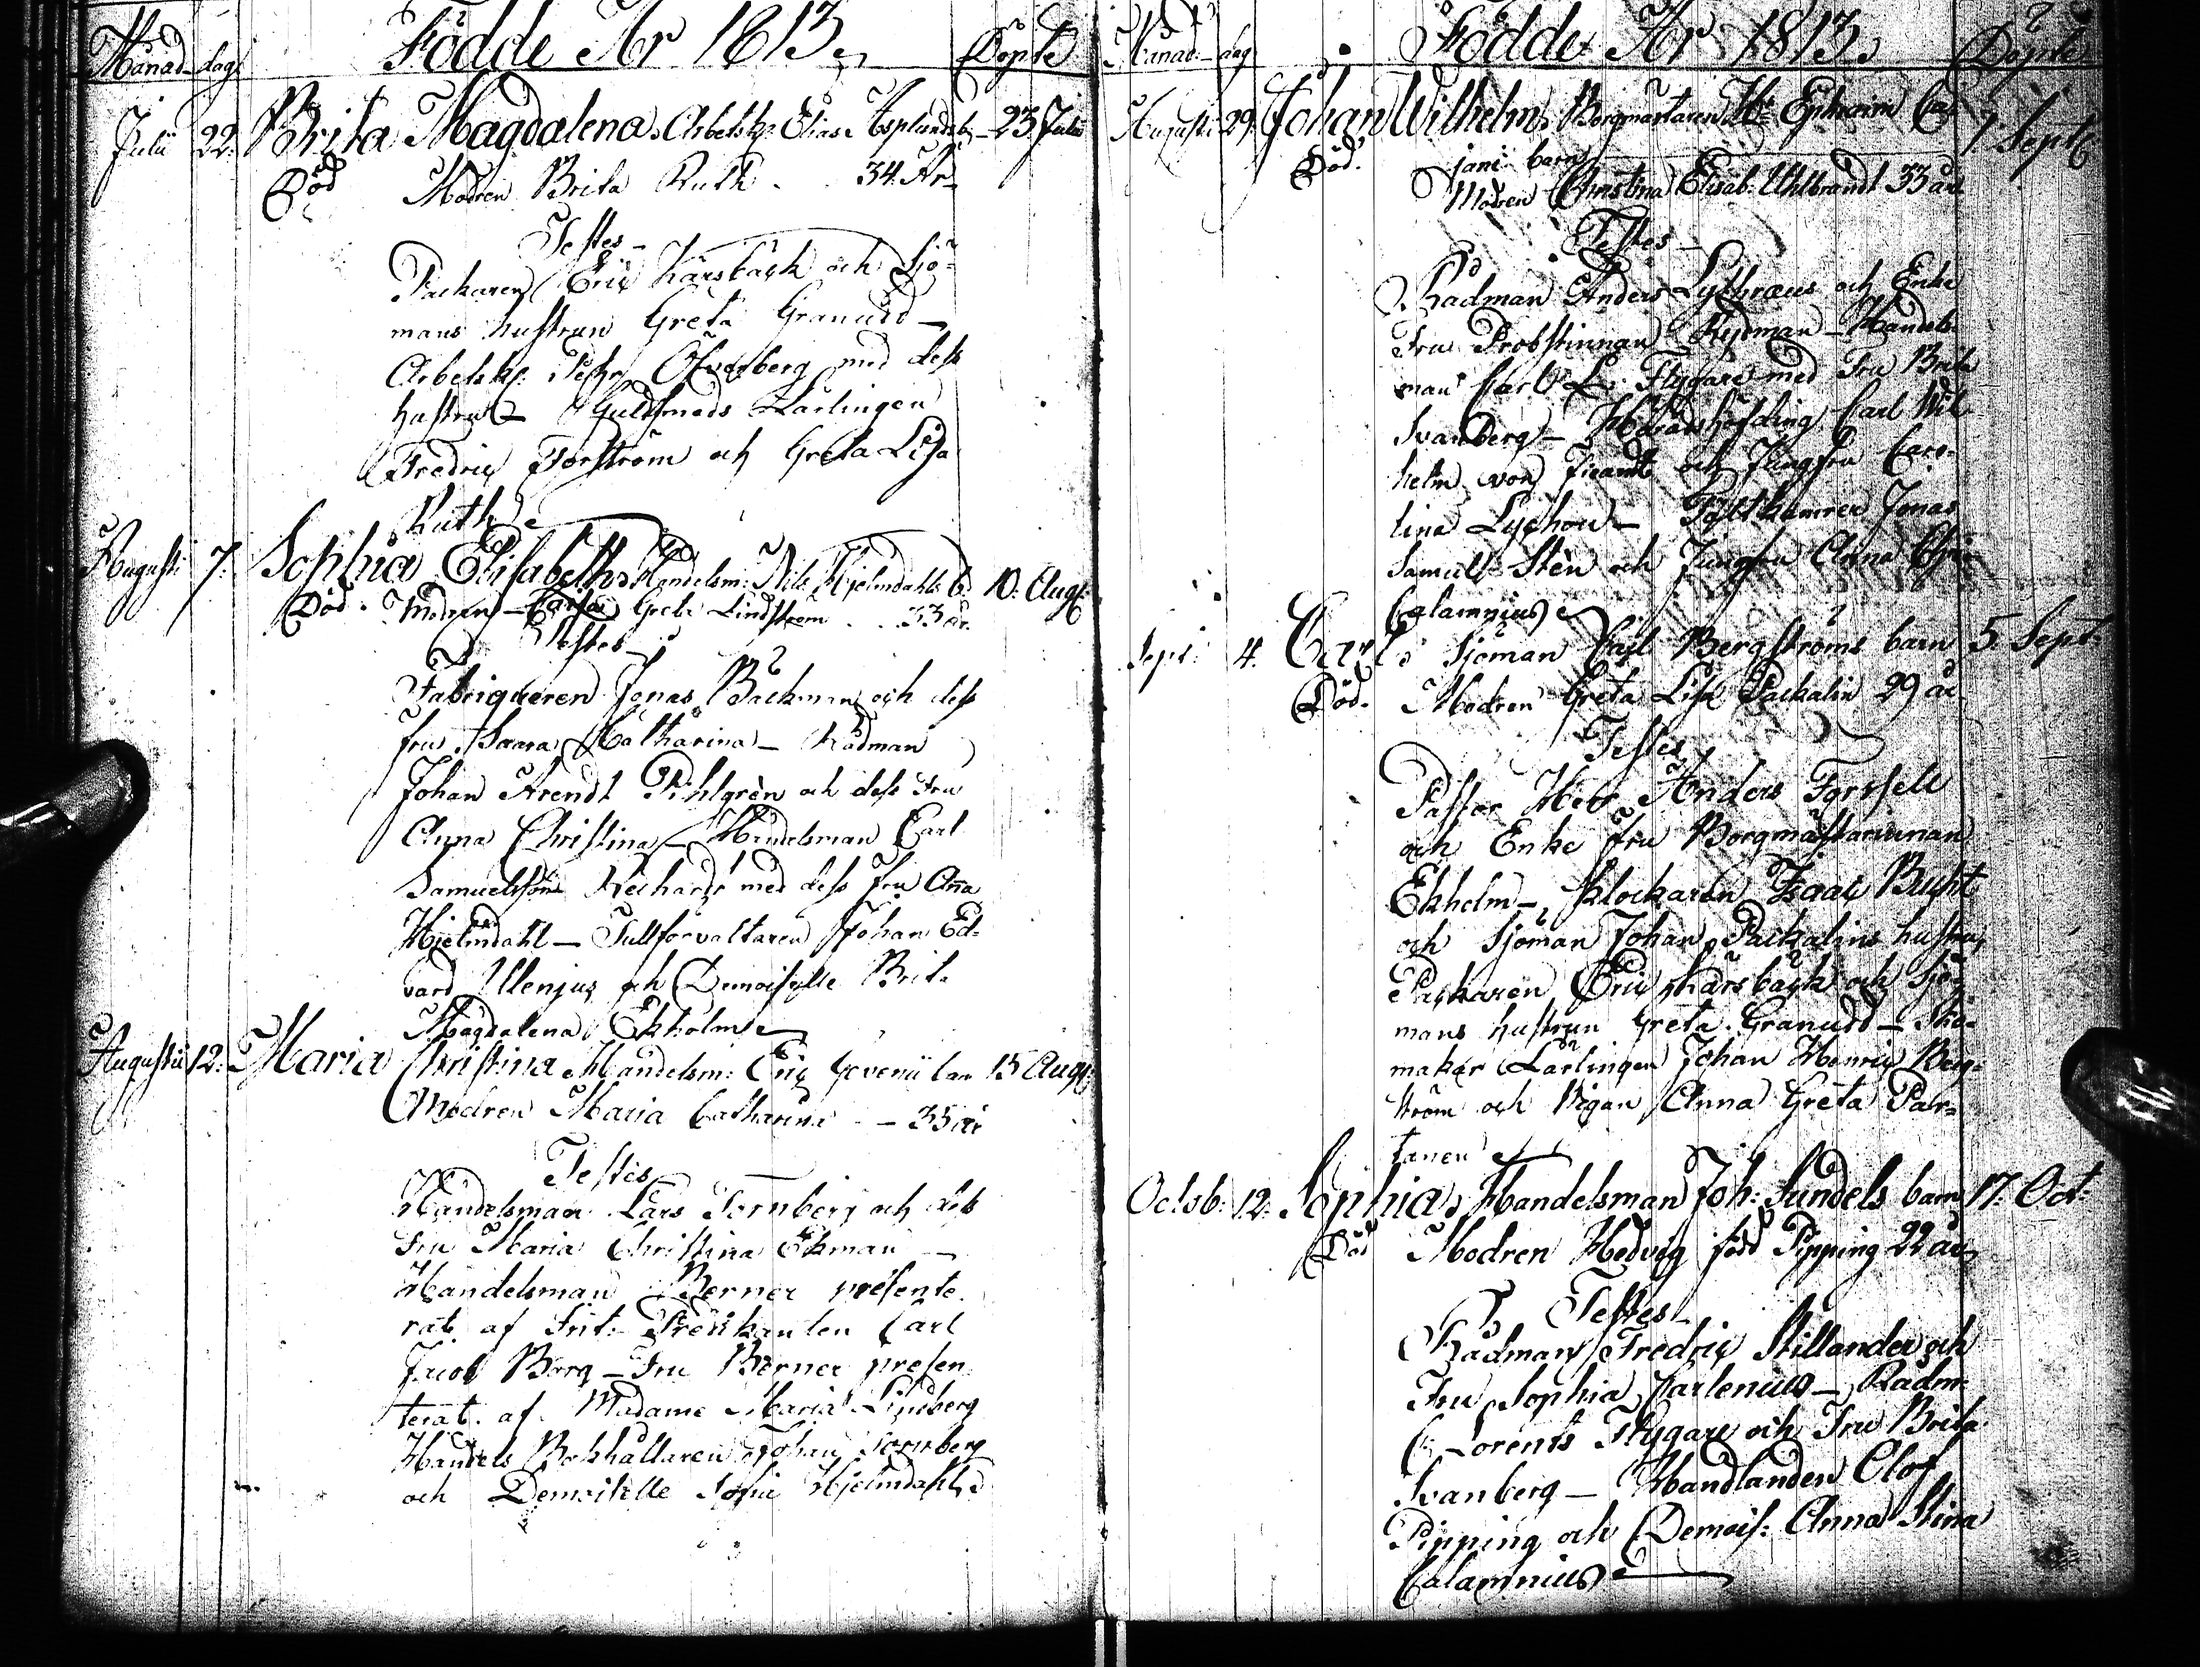 Månad dag Födde År 1813. Döpte
Julii 22. Brita Magdalena. Arbetsk: Elias Asplunds b. 23 Julii
Död Modren Brita Ruth . . 34 År
Testes
Packaren Eric Kärsbäck och Sjö=
mans hustrun Greta Granudd
Arbetsk: Pehr Öfverberg med dess
hustru Guldsmeds Lärlingen
Fredric Forström och Greta Lisa
Ruth
Augusti 7. Sophia Elisabeth Handelsm: Nils Hjelmdahls b. 10. Aug:
Död. Modren Greta Lindström . . 33 år
Testes
Fabriqueren Jonas Backman och dess
fru Saara Catharina Rådman
Johan Arendt Pihlgrén och dess Fru
Anna Christina Handelsman Carl
Samuelsson med dess Fru Aña
Hjelmdahl Tullförvaltaren Johan Ed=
vard Ulenius och Demoiselle Brit.
Magdalena Ekholm
Augusti 12. Maria Christina Handelsm: Eric 13 Aug:
Modren Maria Catharina 35 år
Testes
Handelsman Lars Tornberg och dess
Fru Maria Christina Ekman
Handelsman Berner presente
rat af Carl
Jacob Borg Fru Berner presen
terat. af Madame Maria Lindberg
Handels Bokhållaren Johan Tornberg
och Demoiselle Sofia Hjelmdahl
Månad dag Födde År 1813. Döpte
Augusti 29. Johan Wilhelm. Borgmästaren Hr Ephraim Ca= 1 Sept:
Död. jani barn
Modren Christina Elisab: Uhlbrandt 33 år
Testes
Rådman Anders Lythræus och Enke
Fru Probstinnan Rydman Handels
man Carl L. Flygare med Fru Brita
Svanberg Häradshöfding Carl Wil
helm von och Jungfru Caro=
lina Lychou Jonas
Samuel Stén och Jungfru Anna
Calamnius
Sept: 4. Carl Sjöman Carl Bergströms barn 5. Sept.
Död. Modren Greta Lisa Packalin 29 år
Testes
Pastor Herr Anders Forssell
och Enke Fru Borgmästarinnan
Ekholm Klockaren Isaac Bucht
och Sjöman Johan Packalins hustru,
Packaren Eric Kärsbäck och Sjö
mans hustrun Greta Granudd Sko=
makar Lärlingen Johan Henric Berg=
ström och Pigan Anna Greta Par=
tanen
Octob: 12. Sophia. Handelsman Joh: Sundels barn 17. Oct:
Död Modren Hedvig född Pipping 22 år
Testes
Rådman Fredric Stillander och
Fru Sophia Carlenius Rådm:
C: Lorents Flygare och Fru Brita
Svanberg Handlanden Olof
Pipping och Demois: Anna Stina
Calamnius